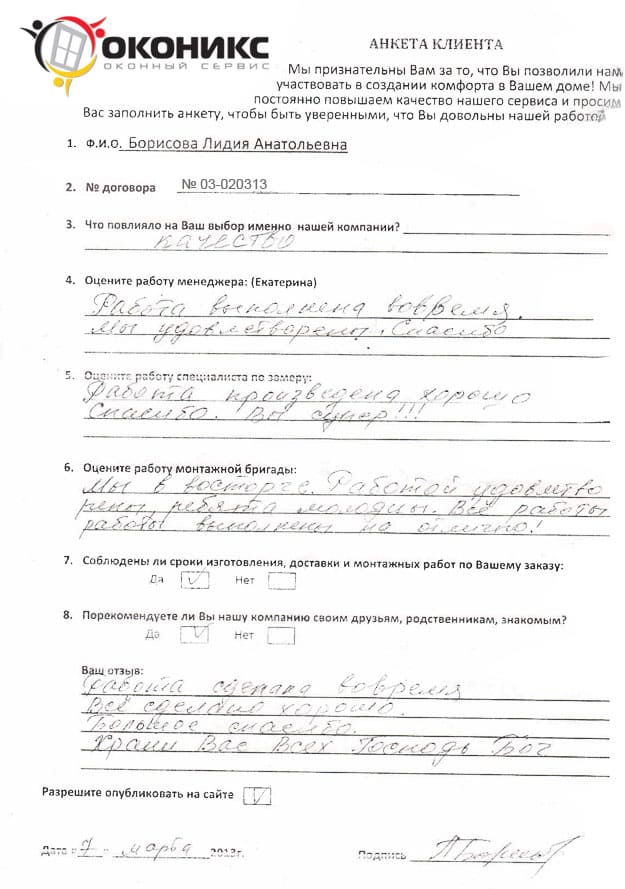 ОКОНИКС
ОКОННЫЙ СЕРВИС
АНКЕТА КЛИЕНТА
Мы признательны Вам за то, что Вы позволили нам
участвовать в создании комфорта в Вашем доме! Мы
постоянно повышаем качество нашего сервиса и просим
Вас заполнить анкету, чтобы быть уверенными, что Вы довольны нашей работой
1. Ф.И.О. Борисова Лидия Анатольевна
2. № договора № 03-020313
3. Что повлияло на Ваш выбор именно нашей компании?
качество
4. Оцените работу менеджера: (Екатерина)
Работа выполнена вовремя.
Мы удовлетворены. Спасибо
5. Оцените работу специалиста по замеру:
Работа произведена хорошо
Спасибо. Вы супер!!!
6. Оцените работу монтажной бригады:
Мы в восторге. Работой удовлетво
рены, ребята молодцы. Все работы
работы выполнены на отлично!
7. Соблюдены ли сроки изготовления, доставки и монтажных работ по Вашему заказу:
Да ✓ Нет
8. Порекомендуете ли Вы нашу компанию своим друзьям, родственникам, знакомым?
Да ✓ Нет
Ваш отзыв:
Работа сделана вовремя
Всё сделано хорошо.
Большое спасибо.
Храни Вас Всех Господь Бог
Разрешите опубликовать на сайте ✓
Дата « 7 » марта 2013г. Подпись